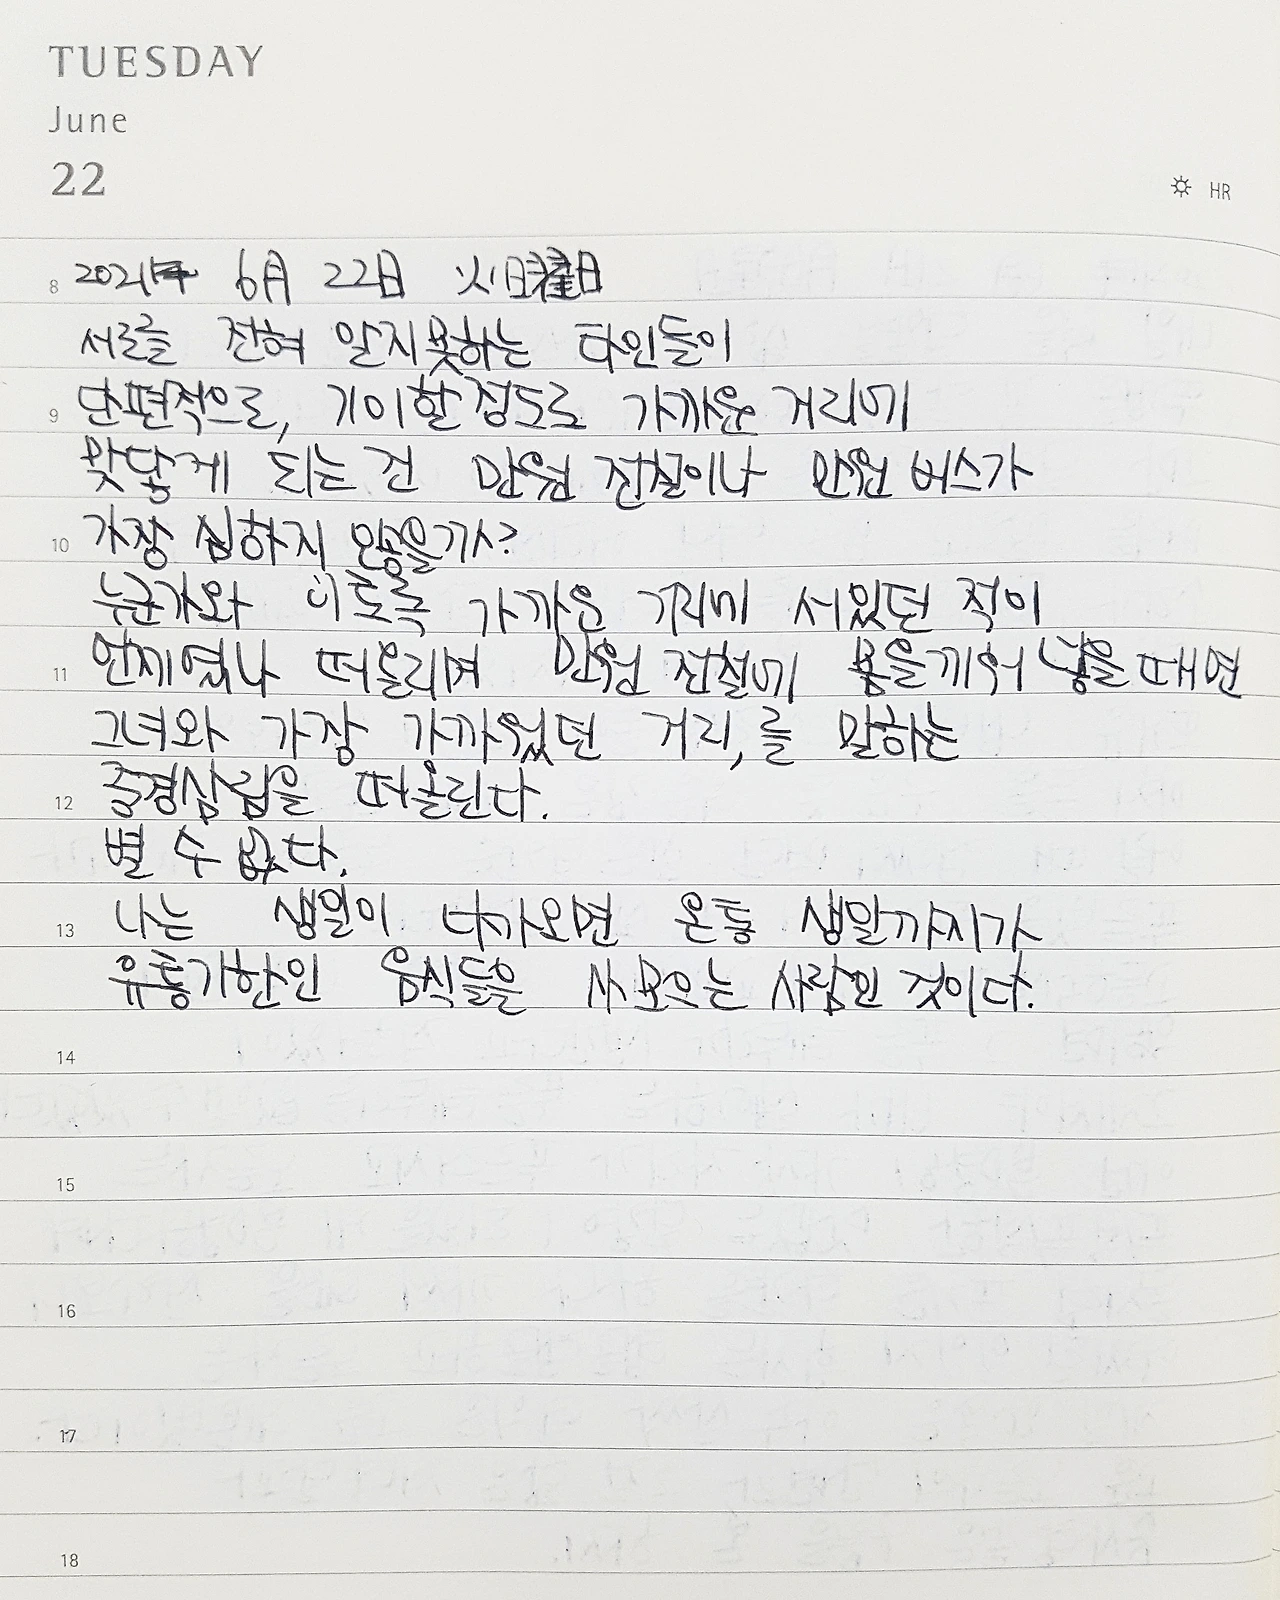 TUESDAY
June
22
HR
8 2021年 6月 22日 火曜日
서로를 전혀 알지못하는 타인들이
9 단편적으로, 기이할 정도로 가까운 거리에
맞닿게 되는 건 만원 전철이나 만원 버스가
10 가장 심하지 않을까?
누군가와 이토록 가까운 거리에 서있던 적이
11 언제였나 떠올리며 만원 전철에 몸을 끼워 넣을 때면
그녀와 가장 가까웠던 거리,를 말하는
12 중경삼림을 떠올린다.
별 수 없다.
13 나는 생일이 다가오면 온통 생일까지가
유통기한인 음식들을 사 모으는 사람인 것이다.
14
15
16
17
18